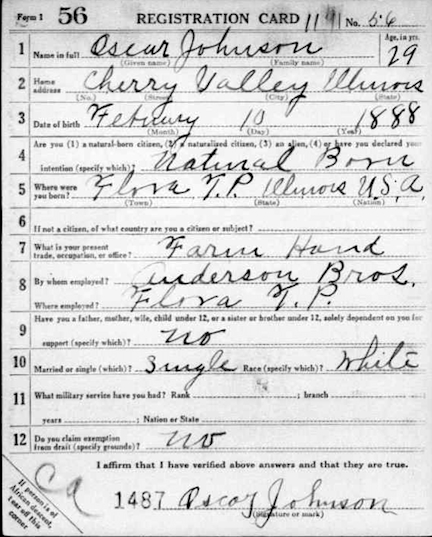 Form 1 56 REGISTRATION CARD 1191 No. 56
1 Name in full Oscar Johnson Age, in yrs. 29
(Given name) (Family name)
2 Home address Cherry Valley Illinois
(No.) (Street) (City) (State)
3 Date of birth Febuary 10 1888
(Month) (Day) (Year)
4 Are you (1) a natural-born citizen, (2) a naturalized citizen, (3) an alien, (4) or have you declared your
intention (specify which)? Natural Born
5 Where were you born? Flora T.P. Illinois U.S.A.
(Town) (State) (Nation)
6 If not a citizen, of what country are you a citizen or subject?
7 What is your present trade, occupation, or office? Farm Hand
8 By whom employed? Anderson Bros.
Where employed? Flora T.P.
9 Have you a father, mother, wife, child under 12, or a sister or brother under 12, solely dependent on you for
support (specify which)? No
10 Married or single (which)? Single Race (specify which)? White
11 What military service have you had? Rank ; branch
years ; Nation or State
12 Do you claim exemption from draft (specify grounds)? No
I affirm that I have verified above answers and that they are true.
1487 Oscar Johnson
(Signature or mark)
If person is of
African descent,
tear off this
corner.